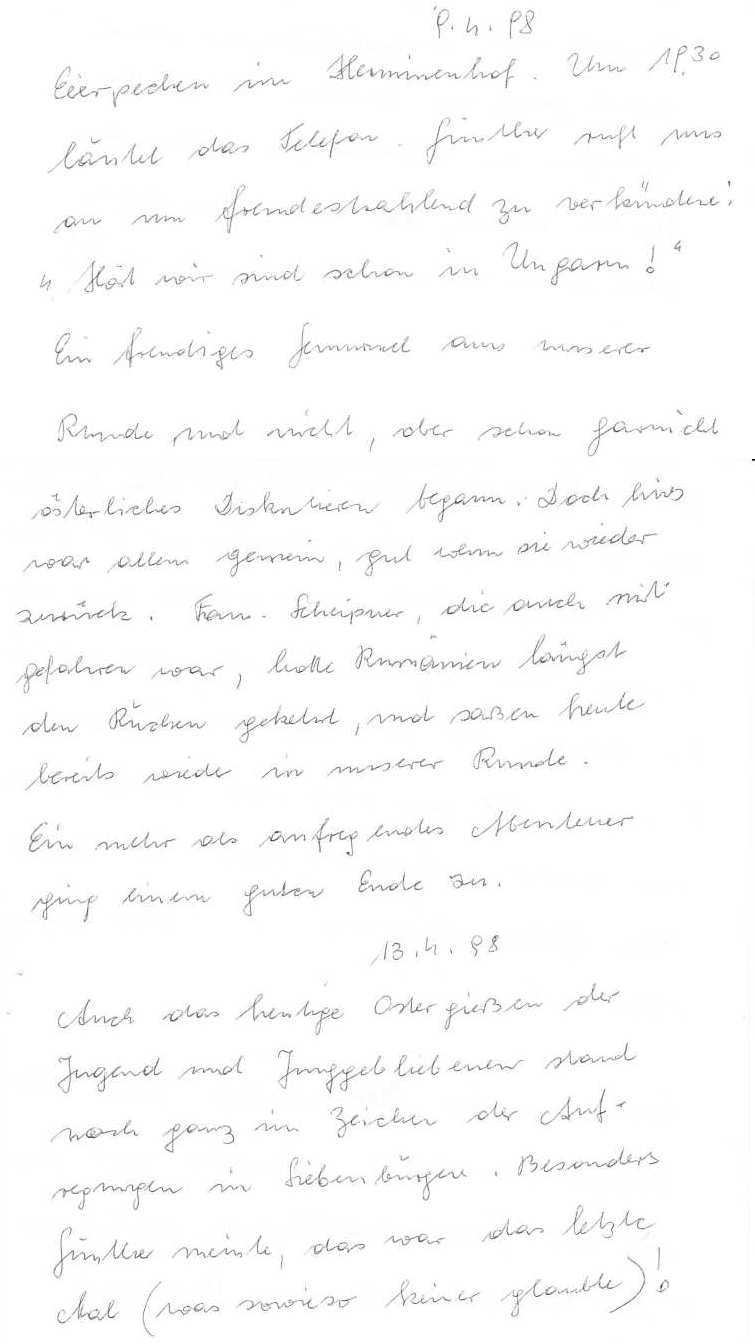 9.4.98
Eierpecken im Herminenhof. Um 19.30
läutet das Telefon. Günther ruft uns
an um freudestrahlend zu verkünden:
"Hört wir sind schon in Ungarn!"
Ein freudiges Gemurmel aus unserer
Runde und nicht, aber schon garnicht
österliches Diskutieren begann. Doch
war allem gemein, gut wenn sie wieder
zurück. Fam. Scheipner, die auch mit-
gefahren war, hatte Rumänien längst
den Rücken gekehrt, und saßen heute
bereits wieder in unserer Runde.
Ein mehr als aufregendes Abenteuer
ging einem guten Ende zu.
13.4.98
Auch das heutige Ostergießen der
Jugend und Junggebliebenen stand
noch ganz im Zeichen der Auf-
regungen in Siebenbürgen. Besonders
Günther meinte, das war das letzte
Mal (was sowieso keiner glaubte)!